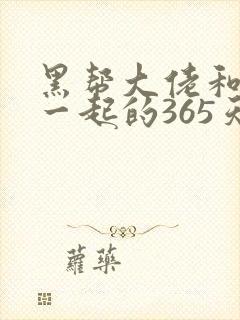 黑帮大佬和
一起的365天
蘿藥